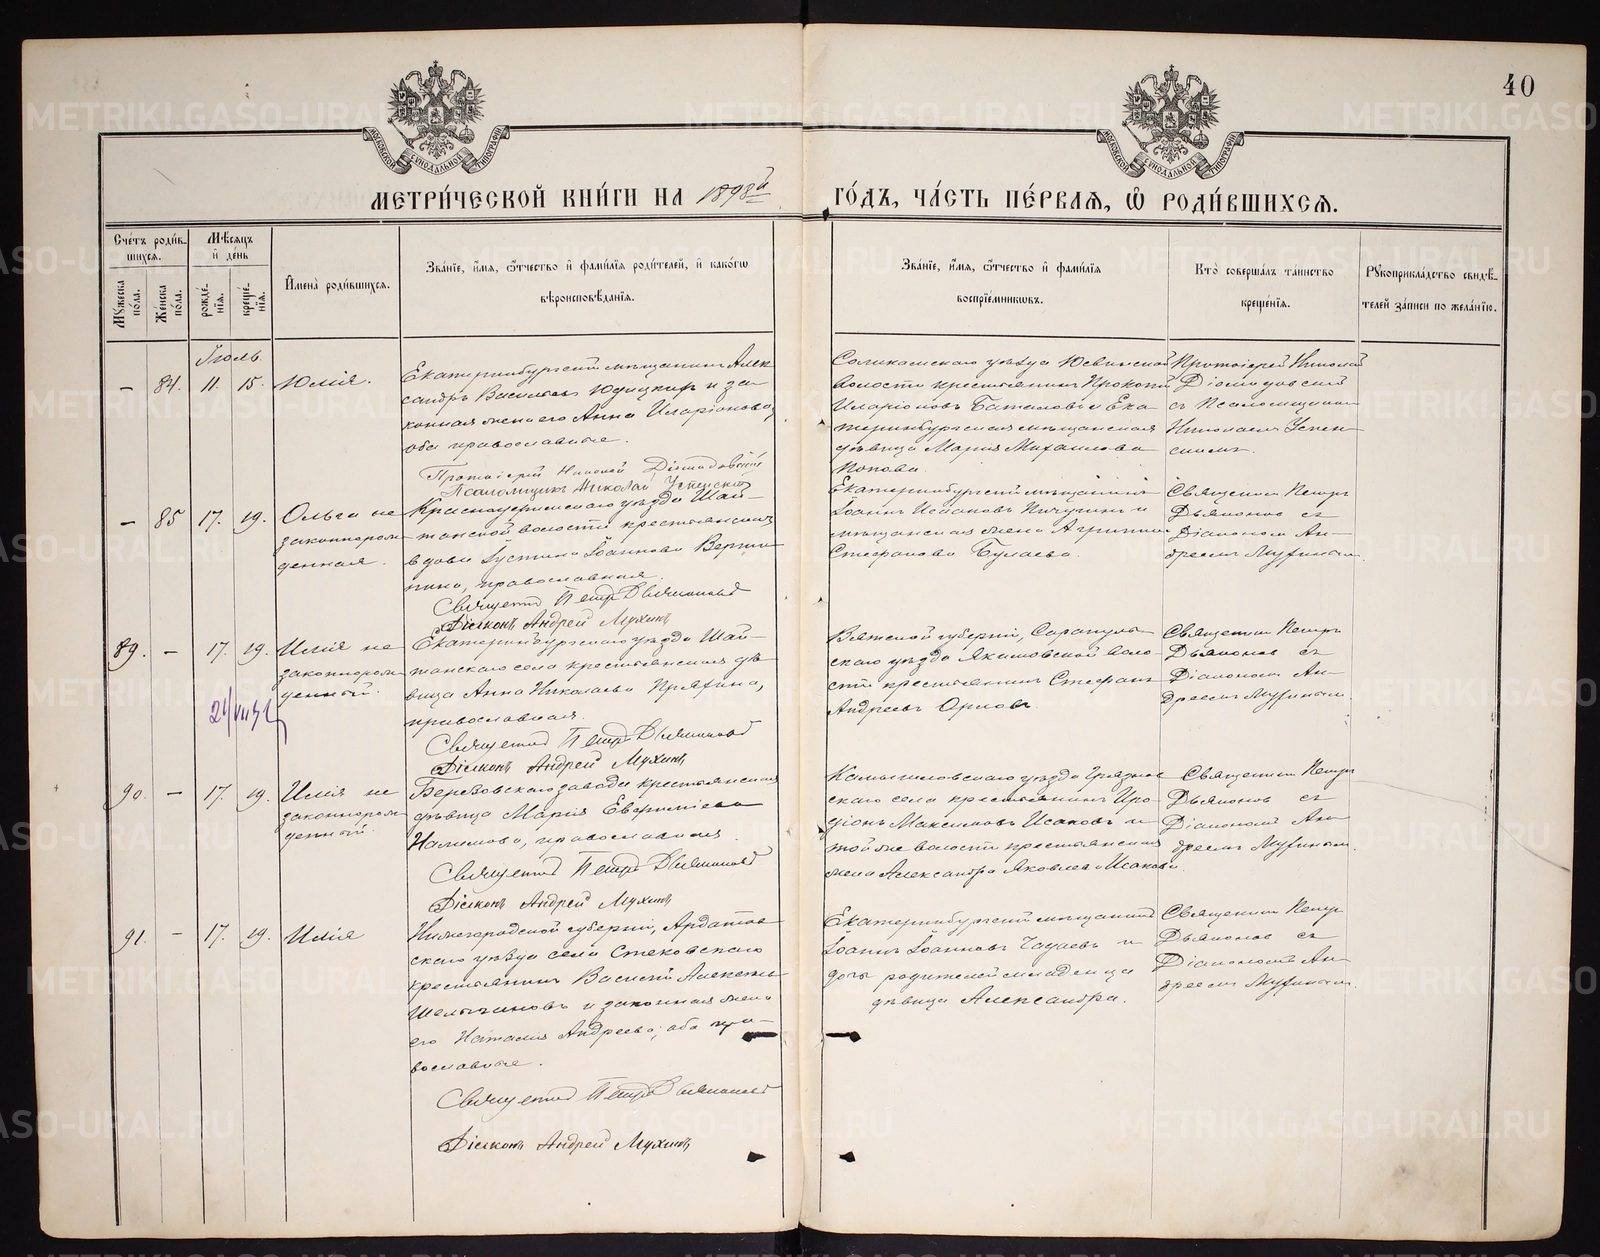 40
МОСКОВСКОЙ СѴНОДАЛЬНОЙ ТИПОГРАФІИ
МОСКОВСКОЙ СѴНОДАЛЬНОЙ ТИПОГРАФІИ
МЕТРИ́ЧЕСКОЙ КНИ́ГИ НА 1898й ГО́ДЪ, ЧА́СТЬ ПЕ́РВАѦ, Ѡ҆ РОДИ́ВШИХСѦ.
Сче́тъ роди́в-
шихся.
Мѣ́сяцъ
и҆ де́нь
Мꙋ́жеска
по́ла.
Же́нска
по́ла.
рожде́-
нїя.
креще́-
нїя.
И҆мена̀ роди́вшихся.
Зва́нїе, и҆́мя, ѻ҆́тчество и҆ фами́лїя роди́телей, и҆ како́гѡ
вѣроисповѣ́данїя.
Зва́нїе, и҆́мя, ѻ҆́тчество и҆ фами́лїя
воспрїе́мникѡвъ.
Кто̀ соверша́лъ та́инство
креще́нїя.
Рꙋкоприкла́дство свидѣ́-
телей за́писи по жела́нїю.
Іюль
– 84. 11. 15. Юлія.
Екатеринбургскій мѣщанинъ Алек
сандръ Васильевъ и за-
конная жена его Анна Иларіонова,
оба православные.
Протоіерей Николай Діомидовскій
Псаломщикъ Николай Успенскій
Соликамскаго уѣзда Юсвинской
волости крестьянинъ Прокопій
Иларіоновъ Баталовъ и Ека-
теринбургская мѣщанская
дѣвица Марія Михаилова
Попова.
Протоіерей Николай
Діомидовскій
съ Псаломщикомъ
Николаемъ Успен-
скимъ.
– 85 17. 19. Ольга не
законнорож
денная.
Красноуфимскаго уѣзда Шай-
танской волости крестьянская
вдова Іустина Іоаннова
православная.
Священникъ Петръ Дьяконовъ
Діаконъ Андрей Мухинъ
Екатеринбургскій мѣщанинъ
Іоаннъ Исааковъ Пичугинъ и
мѣщанская жена Агриппина
Стефанова Булаева.
Священникъ Петръ
Дьяконовъ съ
Діакономъ Ан-
дреемъ Мухинымъ.
89. – 17. 19. Илія не
законнорож
денный.
21/VII 31
Екатеринбургскаго уѣзда Шай-
танскаго села крестьянская дѣ-
вица Анна Николаева Пряхина,
православная.
Священникъ Петръ Дьяконовъ
Діаконъ Андрей Мухинъ
Вятской губерніи, Сарапуль-
скаго уѣзда Якшовской воло-
сти крестьянинъ Стефанъ
Андреевъ Орловъ.
Священникъ Петръ
Дьяконовъ съ
Діакономъ Ан-
дреемъ Мухинымъ.
90. – 17. 19. Илія не
законнорож
денный.
Березовскаго завода крестьянская
дѣвица Марія Евфиміева
Налимова, православная.
Священникъ Петръ Дьяконовъ
Діаконъ Андрей Мухинъ
Камышловскаго уѣзда Грязнов
скаго села крестьянинъ Иро-
діонъ Максимовъ Исаковъ и
той же волости крестьянская
жена Александра Яковлева Исакова.
Священникъ Петръ
Дьяконовъ съ
Діакономъ Ан-
дреемъ Мухинымъ.
91. – 17. 19. Илія
Нижегородской губерніи, Ардатов
скаго уѣзда села Стексовскаго
крестьянинъ Василій Алексѣевъ
и законная жена
его Наталія Андреева, оба пра-
вославные.
Священникъ Петръ Дьяконовъ
Діаконъ Андрей Мухинъ
Екатеринбургскій мѣщанинъ
Іоаннъ Іоанновъ Чадаевъ и
дочь родителей младенца
дѣвица Александра.
Священникъ Петръ
Дьяконовъ съ
Діакономъ Ан-
дреемъ Мухинымъ.
METRIKI.GASO-URAL.RU